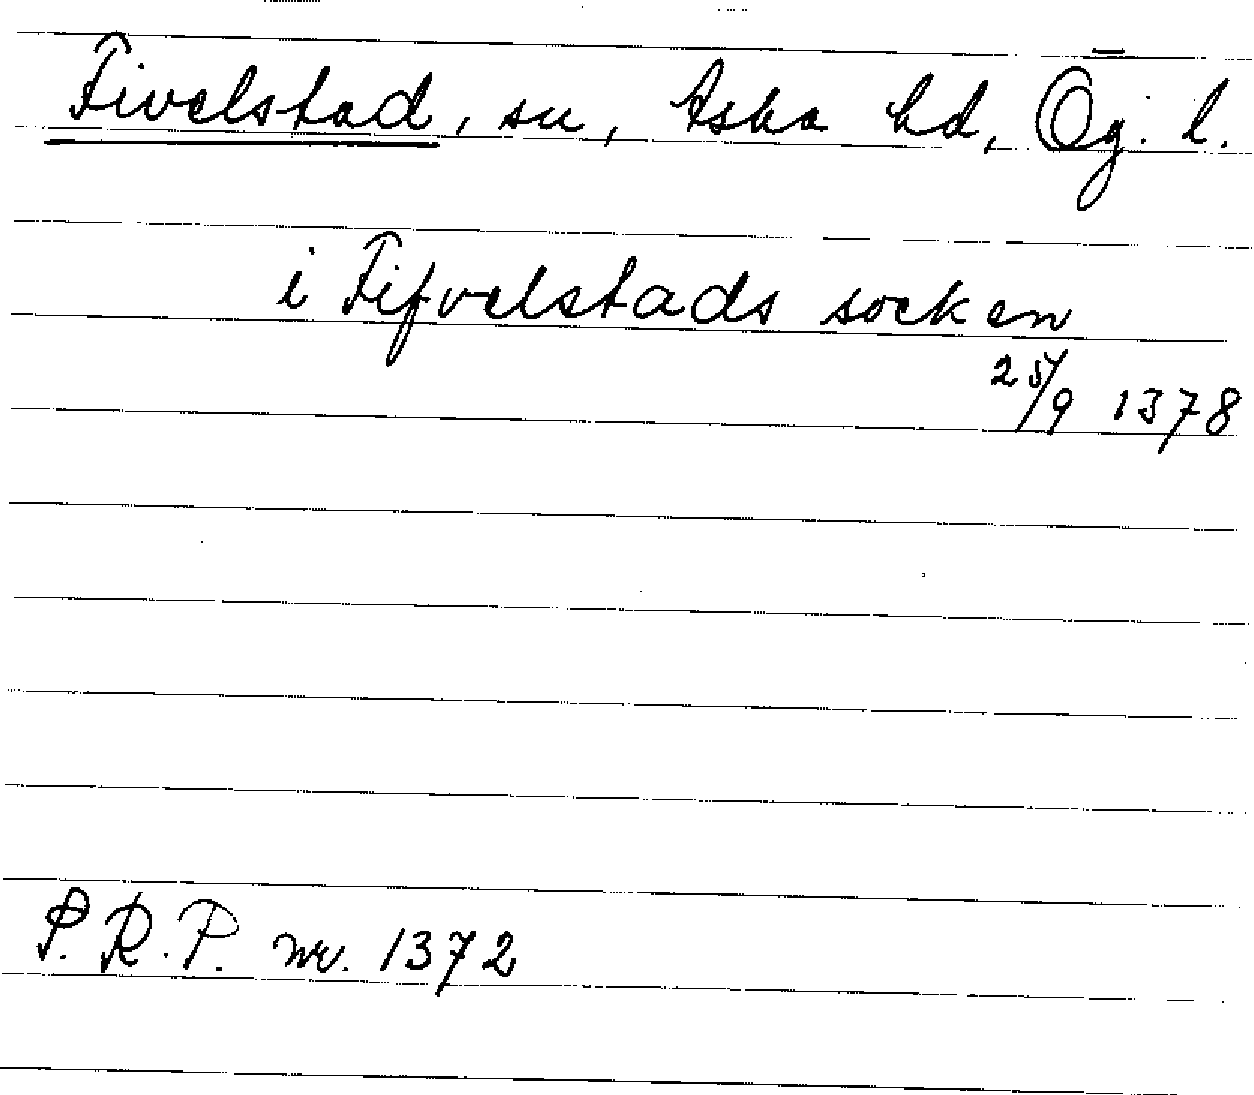 Fivelstad, sn, Aska hd, Ög. l.
i Fifvelstads socken
25/9 1378
P. R. P. nr. 1372